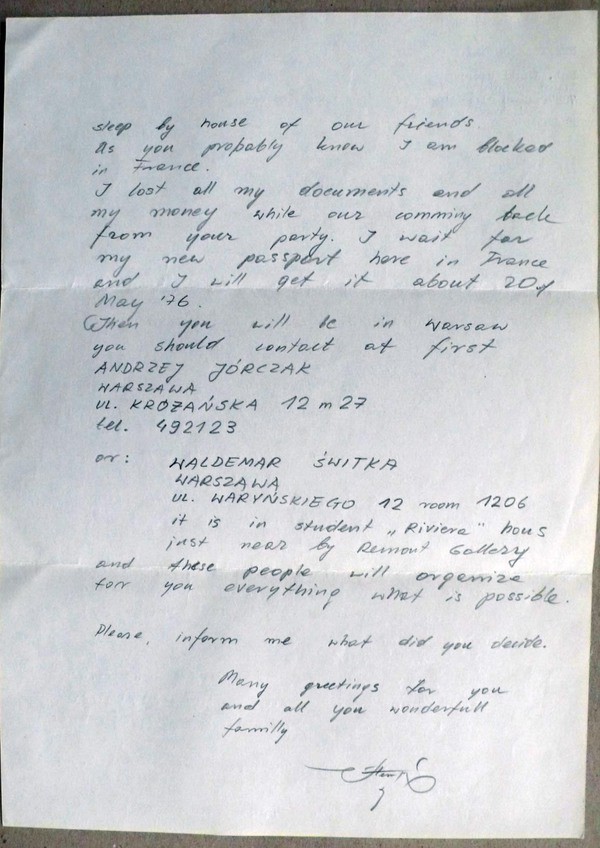 sleep by house of our friends.
As you propably know I am blocked
in France.
I lost all my documents and all
my money while our comming back
from your party. I wait for
my new passport here in France
and I will get it about 20
May '76.
When you will be in Warsaw
you should contact at first
ANDRZEJ JÓRCZAK
WARSZAWA
UL. KROŻAŃSKA 12 m 27
tel. 492123
or: WALDEMAR ŚWITKA
WARSZAWA
UL. WARYŃSKIEGO 12 room 1206
it is in student „Riviera" hous
just near by Remont Gallery
and these people will organize
for you everything what is possible.
Please, inform me what did you decide.
Many greetings for you
and all you wonderfull
familly